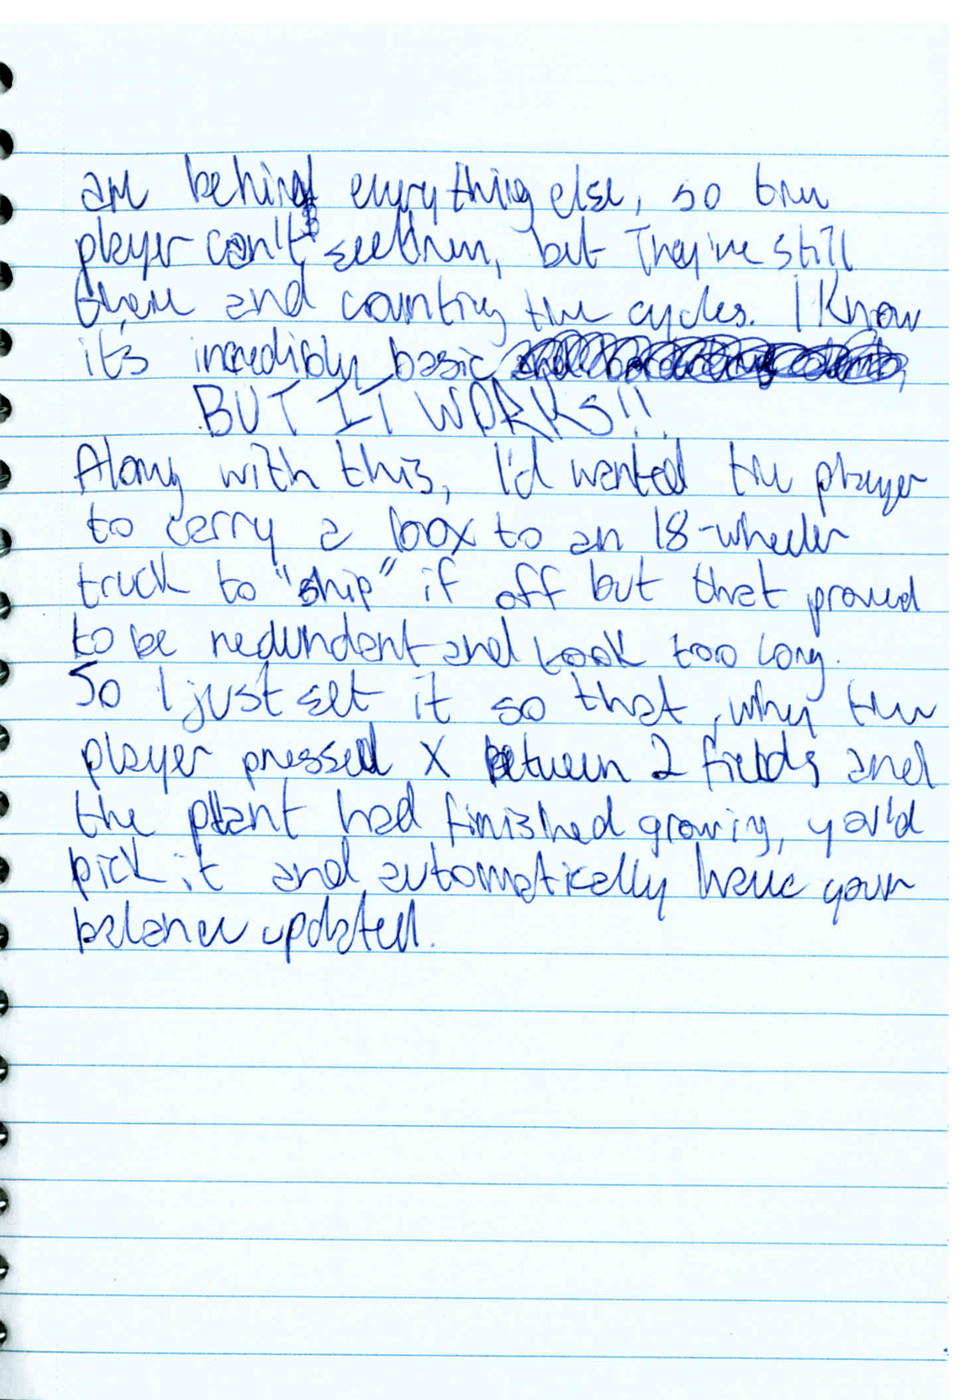 are behind everything else, so the
player can't see them, but They're still
there and counting the cycles. I know
it's incredibly basic
BUT IT WORKS!!
Along with this, I'd wanted the player
to carry a box to an 18-wheeler
truck to "ship" it off but that proved
to be redundant and took too long.
So I just set it so that, when the
player pressed X between 2 fields and
the plant had finished growing, you'd
pick it and automatically have your
balance updated.